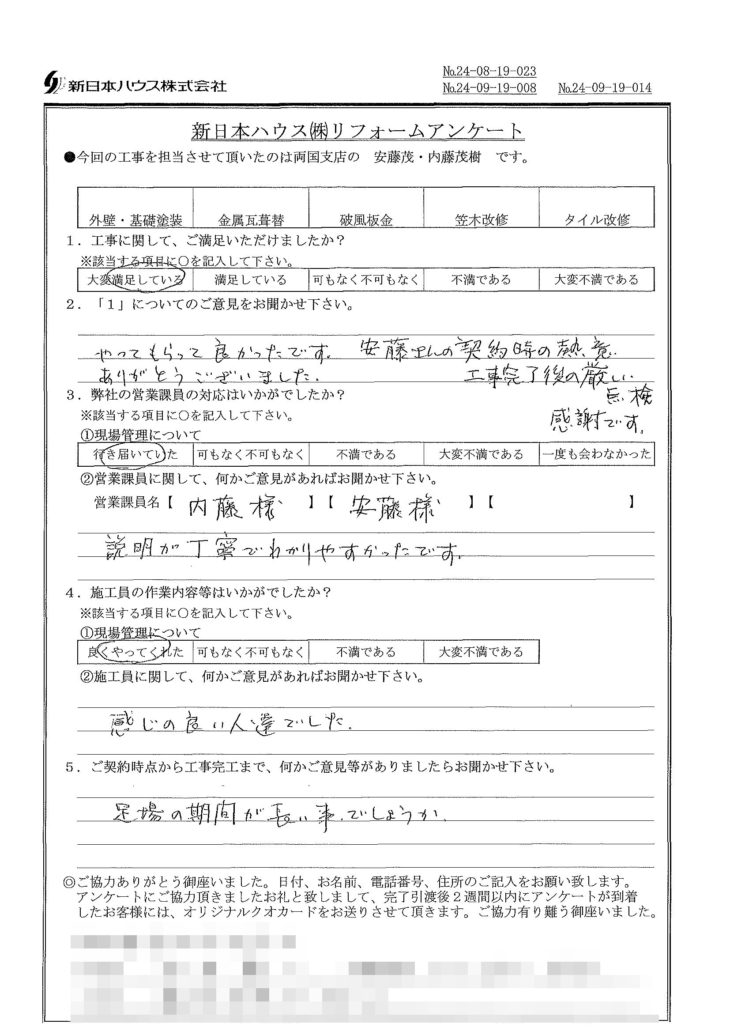 新日本ハウス株式会社
№24-08-19-023
№24-09-19-008 №24-09-19-014
新日本ハウス㈱リフォームアンケート
●今回の工事を担当させて頂いたのは両国支店の 安藤茂・内藤茂樹 です。
外壁・基礎塗装 金属瓦葺替 破風板金 笠木改修 タイル改修
1．工事に関して、ご満足いただけましたか？
※該当する項目に○を記入して下さい。
大変満足している 満足している 可もなく不可もなく 不満である 大変不満である
2．「1」についてのご意見をお聞かせ下さい。
やってもらって良かったです。 安藤さんの契約時の熱意
ありがとうございました。 工事完了後の厳しい
点検
感謝です。
3．弊社の営業課員の対応はいかがでしたか？
※該当する項目に○を記入して下さい。
①現場管理について
行き届いていた 可もなく不可もなく 不満である 大変不満である 一度も会わなかった
②営業課員に関して、何かご意見があればお聞かせ下さい。
営業課員名【 内藤様 】【 安藤様 】【 】
説明が丁寧でわかりやすかったです。
4．施工員の作業内容等はいかがでしたか？
※該当する項目に○を記入して下さい。
①現場管理について
良くやってくれた 可もなく不可もなく 不満である 大変不満である
②施工員に関して、何かご意見があればお聞かせ下さい。
感じの良い人達でした。
5．ご契約時点から工事完工まで、何かご意見等がありましたらお聞かせ下さい。
足場の期間が長い事でしょうか。
◎ご協力ありがとう御座いました。日付、お名前、電話番号、住所のご記入をお願い致します。
アンケートにご協力頂きましたお礼と致しまして、完了引渡後２週間以内にアンケートが到着
したお客様には、オリジナルクオカードをお送りさせて頂きます。ご協力有り難う御座いました。